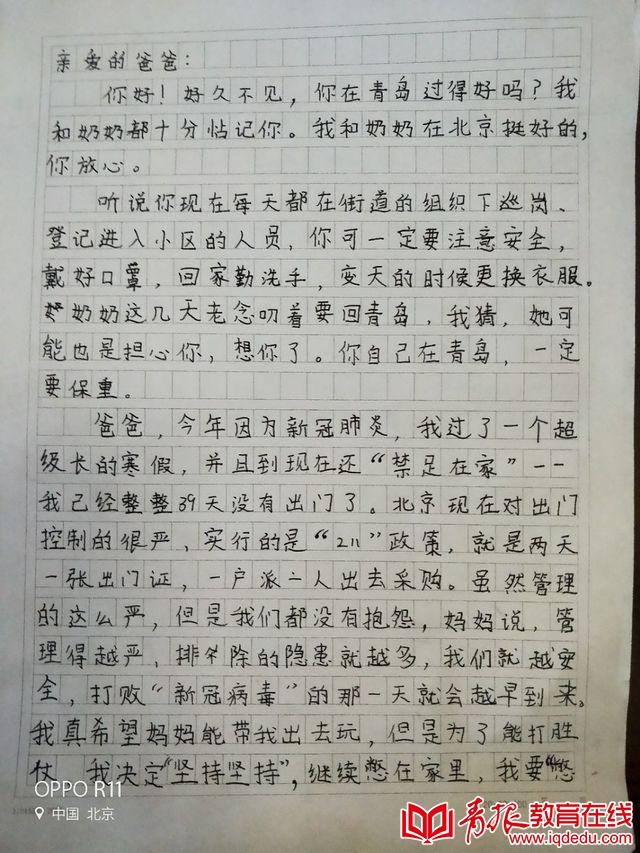 亲爱的爸爸：
你好！好久不见，你在青岛过得好吗？我
和奶奶都十分惦记你。我和奶奶在北京挺好的，
你放心。
听说你现在每天都在街道的组织下巡岗、
登记进入小区的人员，你可一定要注意安全，
戴好口罩，回家勤洗手，变天的时候更换衣服。
奶奶这几天老念叨着要回青岛，我猜，她可
能也是担心你，想你了。你自己在青岛，一定
要保重。
爸爸，今年因为新冠肺炎，我过了一个超
级长的寒假，并且到现在还“禁足在家”——
我已经整整39天没有出门了。北京现在对出门
控制的很严，实行的是“211”政策，就是两天
一张出门证，一户派一人出去采购。虽然管理
的这么严，但是我们都没有抱怨，妈妈说，管
理得越严，排除的隐患就越多，我们就越安
全，打败“新冠病毒”的那一天就会越早到来。
我真希望妈妈能带我出去玩，但是为了能打胜
仗 我决定“坚持坚持”，继续憋在家里，我要“憋
OPPO R11
中国 北京
青报教育在线
www.iqdedu.com